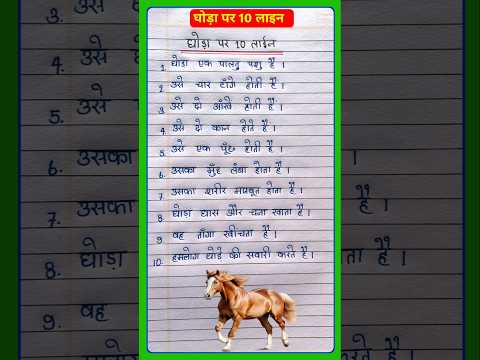 घोड़ा पर 10 लाइन
घोड़ा पर 10 लाईन
1. घोड़ा एक पालतु पशु है ।
2. उसे चार टाँगे होती है ।
3. उसे दो आँखे होती है ।
4. उसे दो कान होते है ।
5. उसे एक पूँछ होती है ।
6. उसका मुँह लंबा होता है ।
7. उसका शरीर मजबूत होता है ।
8. घोड़ा घास और चना खाता है ।
9. वह ताँगा खींचता है ।
10. हमलोग घोड़े की सवारी करते है ।